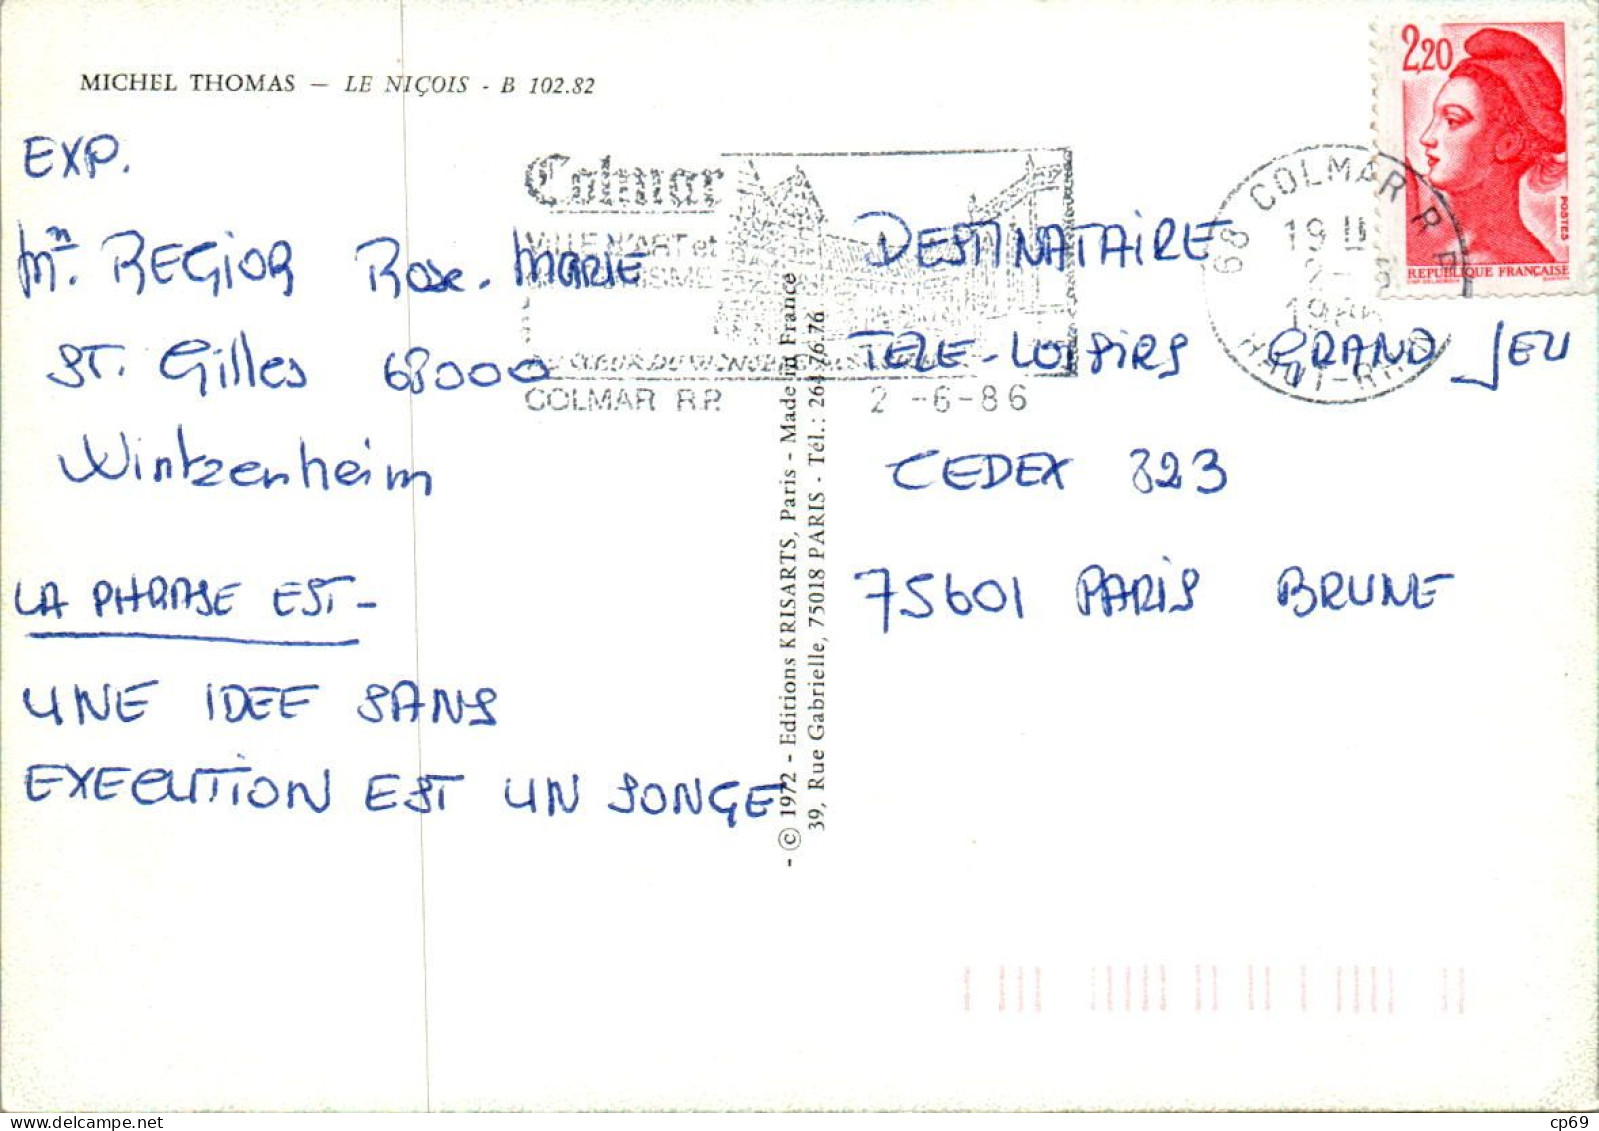 MICHEL THOMAS — LE NIÇOIS - B 102.82
EXP.
REGIOR Rose-MARIE
ST. Gilles 68000
Wintzenheim
LA PHRASE EST-
UNE IDEE SANS
EXECUTION EST UN SONGE
Colmar
VILLE D'ART et
COLMAR R.P. 2-6-86
- © 1972 - Editions KRISARTS, Paris - Made in France
39, Rue Gabrielle, 75018 PARIS - Tél.: 264.76.76
2,20
POSTES
REPUBLIQUE FRANÇAISE
68 COLMAR R P
HAUT-RHIN
DESTINATAIRE
TELE-LOISIRS GRAND JEU
CEDEX 323
75601 PARIS BRUNE
cp69